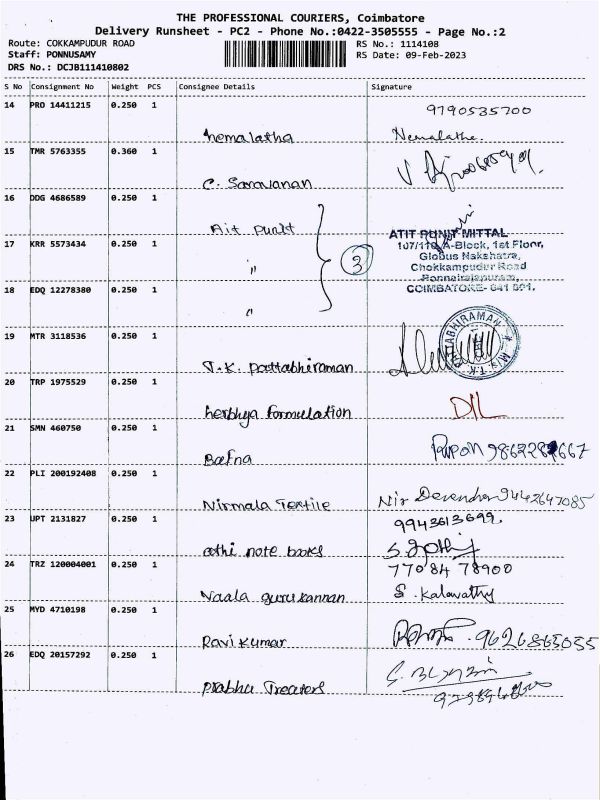 THE PROFESSIONAL COURIERS, Coimbatore
Delivery Runsheet - PC2 - Phone No.:0422-3505555 - Page No.:2
Route: COKKAMPUDUR ROAD
RS No.: 1114108
Staff: PONNUSAMY
RS Date: 09-Feb-2023
DRS No.: DCJB111410802
S No Consignment No Weight PCS Consignee Details Signature
14 PRO 14411215 0.250 1 9790535700
hemalatha Nemalatha.
15 TMR 5763355 0.360 1
C. Saravanan
16 DDG 4686589 0.250 1
Ait punit ATIT PUNIT MITTAL
17 KRR 5573434 0.250 1 107/110, A-Block, 1st Floor,
" 3 Globus Nakshatra,
Chokkampudur Road
Ponnairajapuram,
18 EDQ 12278380 0.250 1 COIMBATORE- 641 001.
"
19 MTR 3118536 0.250 1
T.K. pattabhiraman PATTABHIRAMAN
20 TRP 1975529 0.250 1
herbhya formulation
21 SMN 460750 0.250 1
Bafna
22 PLI 200192408 0.250 1
Nirmala Textile Nir Devendher 9442647085
23 UPT 2131827 0.250 1 9943613699.
othi note books S. Jothi
24 TRZ 120004001 0.250 1 77084 78900
Naala gurukannan S. Kalavathy
25 MYD 4710198 0.250 1
Ravi Kumar 9626865055
26 EDQ 20157292 0.250 1
Prabhu Treaters